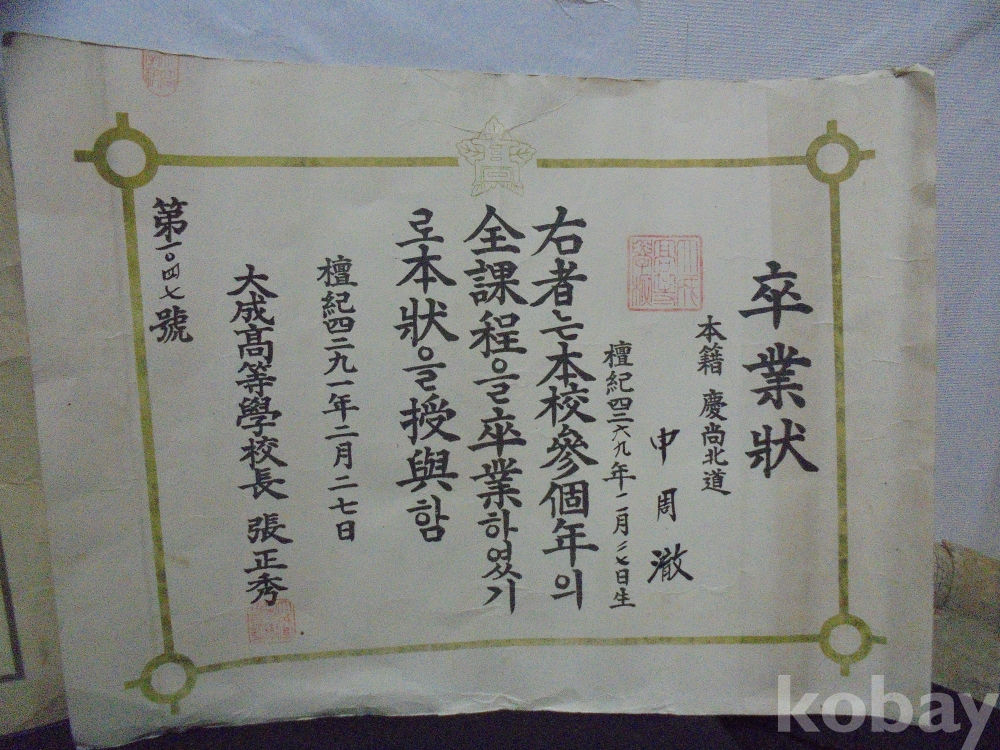 卒業狀
本籍 慶尙北道
申周澈
檀紀四二六九年一二月二七日生
右者는本校參個年의
全課程을卒業하였기
로本狀을授與함
檀紀四二九一年二月二七日
大成高等學校長 張正秀
第一〇四七號
高
kobay